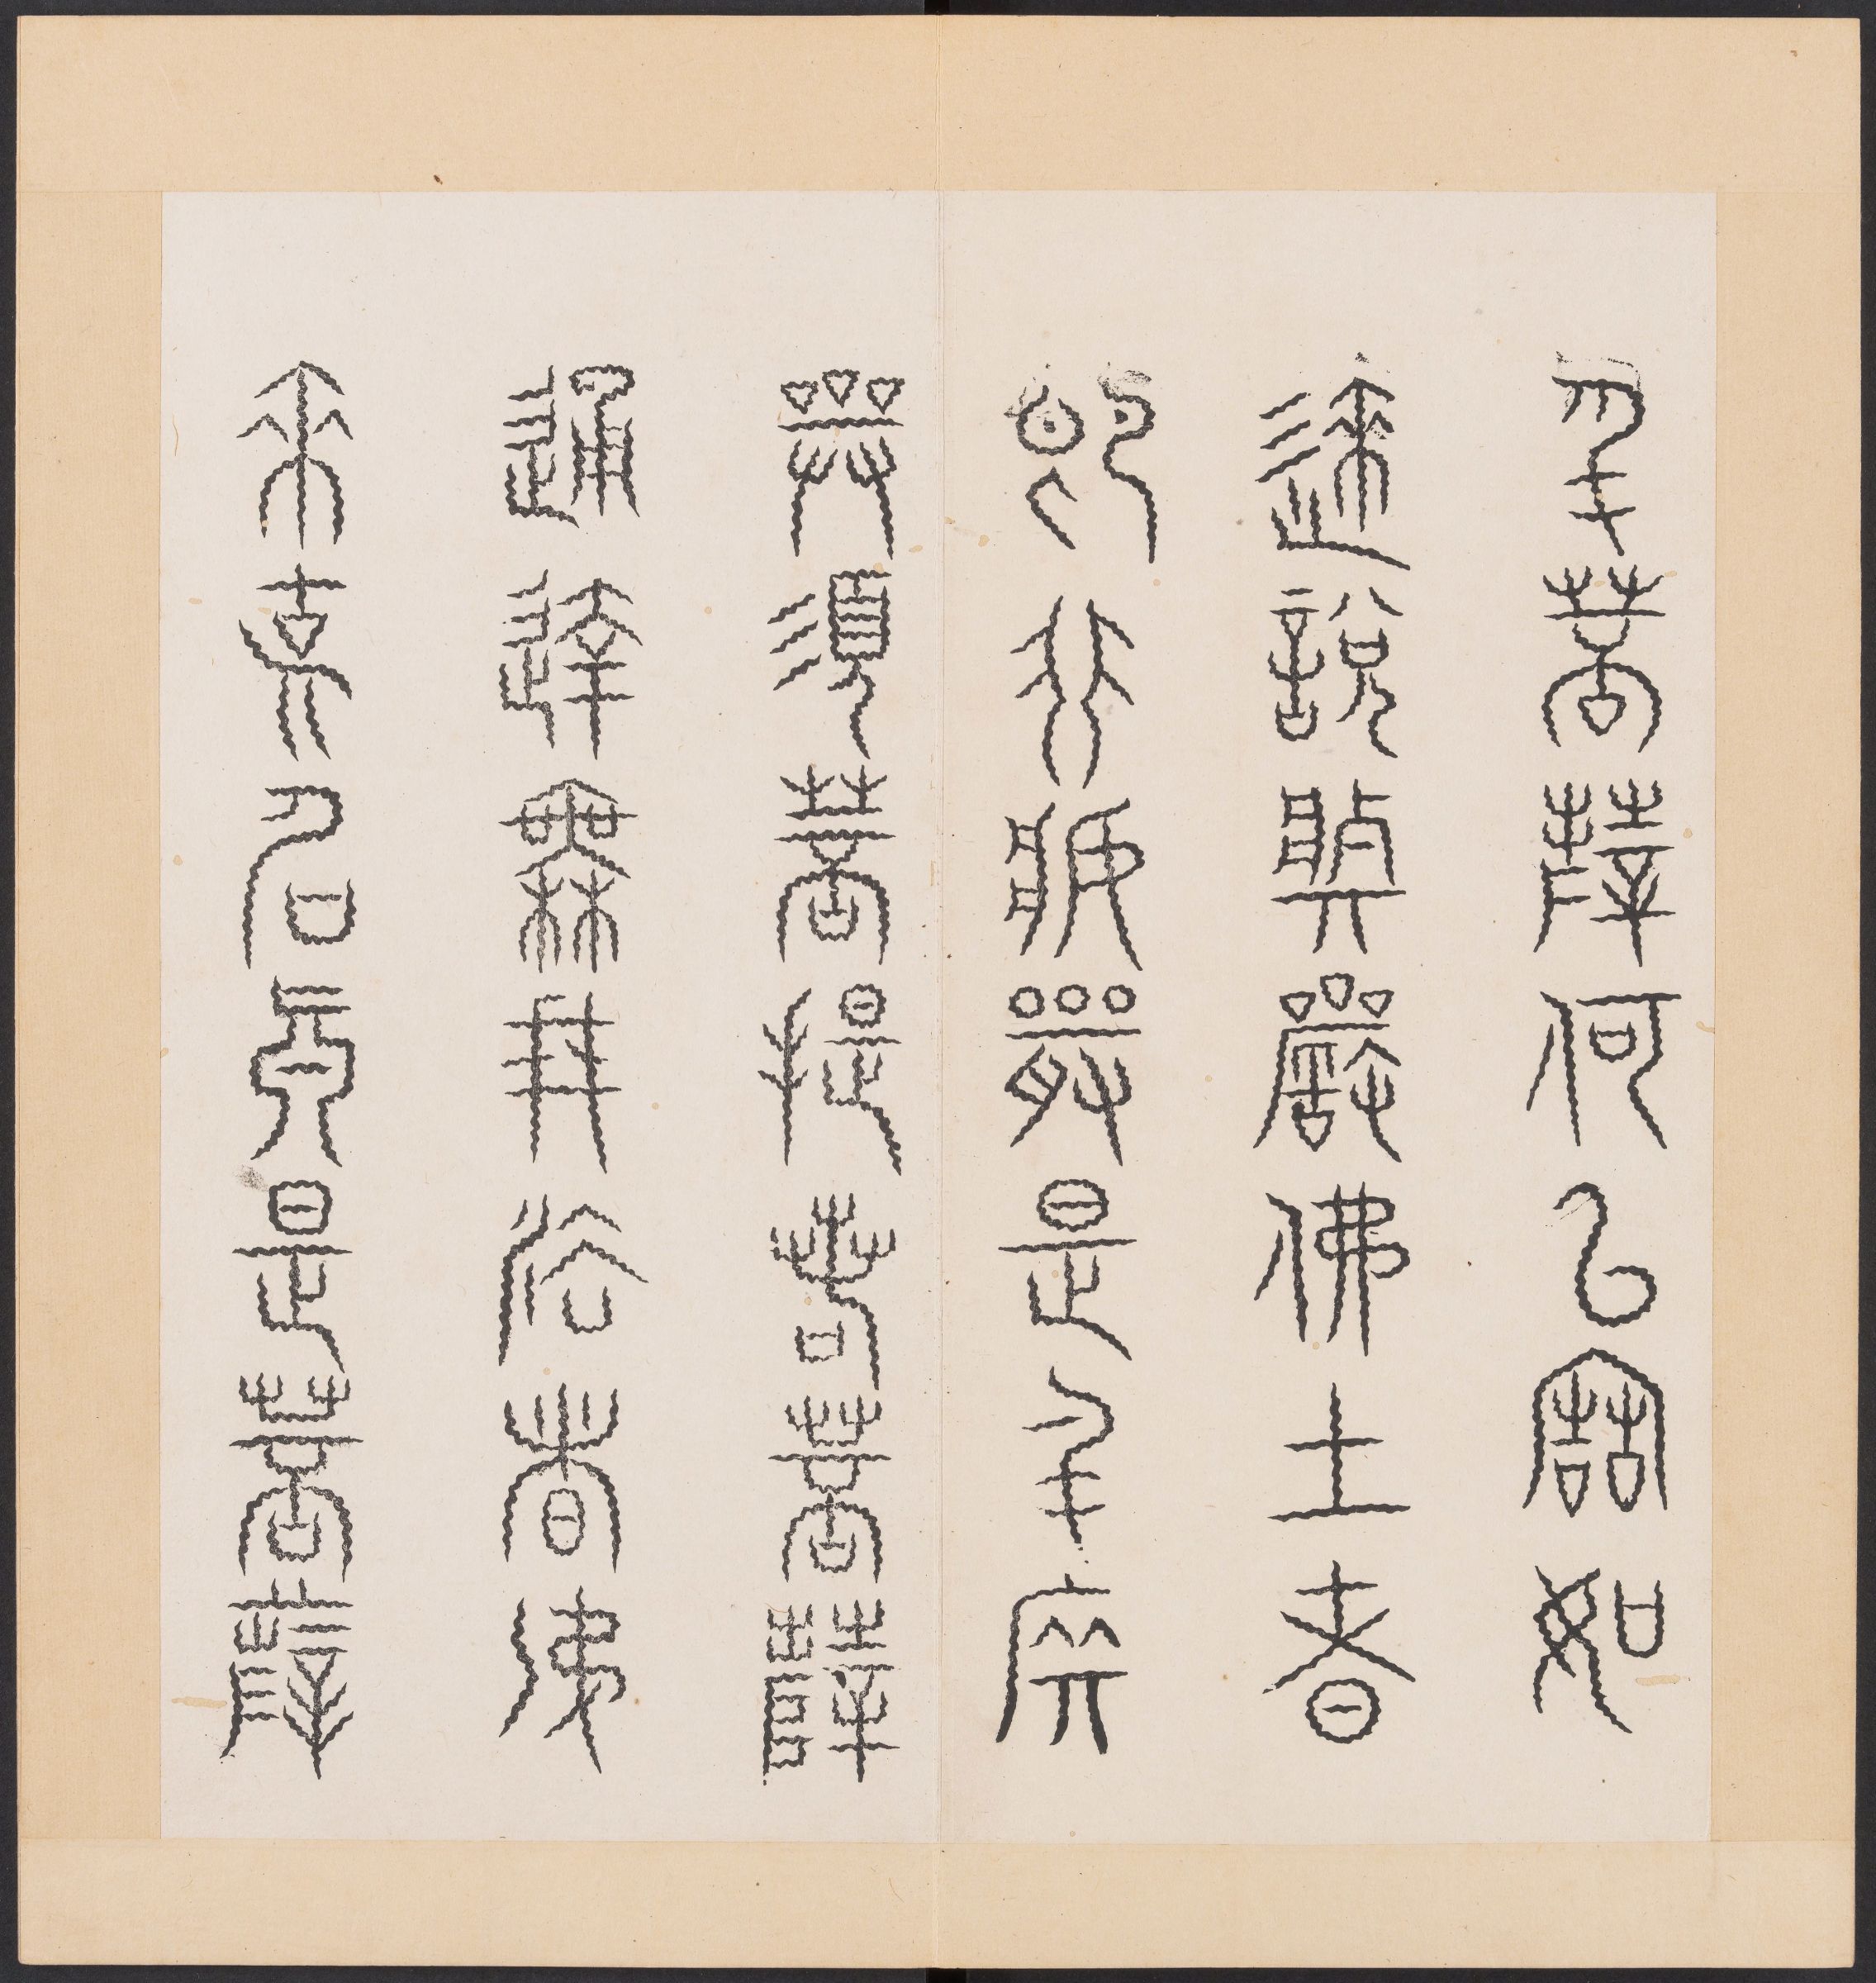 名菩薩何以故如
來說莊嚴佛土者
即非莊嚴是名莊
嚴須菩提若菩薩
通達無我法者如
來說名真是菩薩